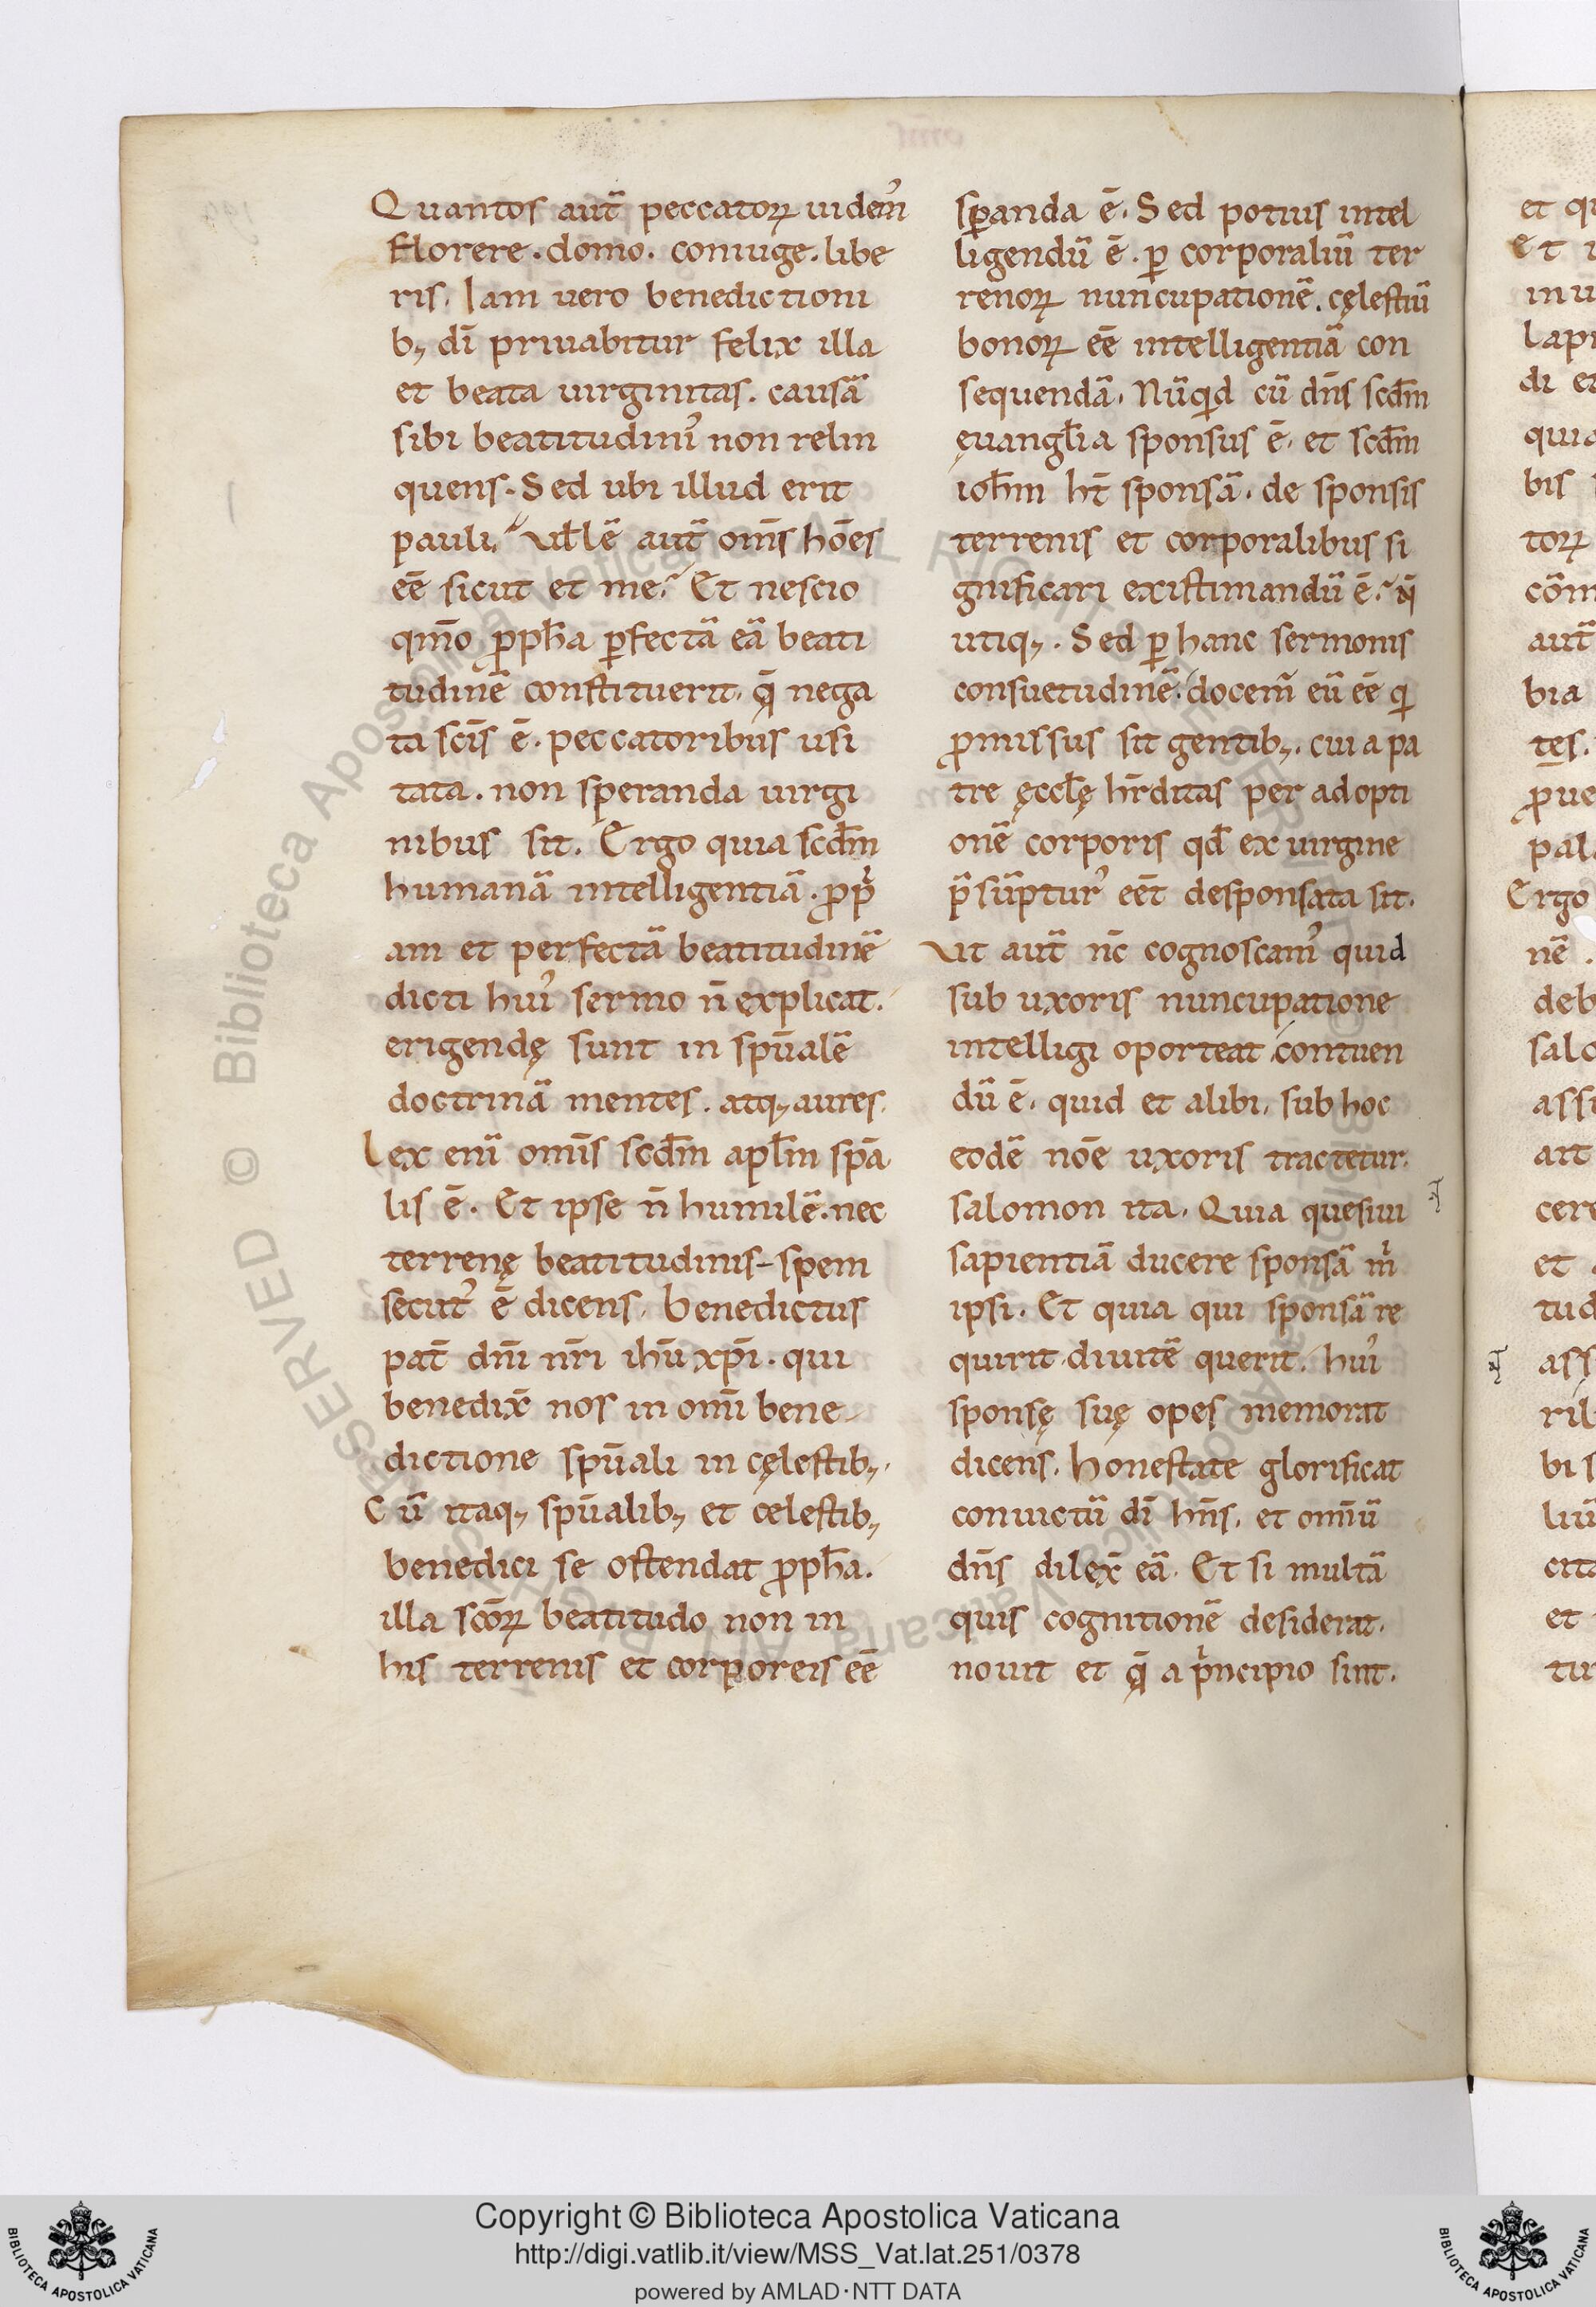 Quantos aut̄ peccatoꝝ uidem᾽
florere. domo. coniuge. libe
ris. Iam uero benedictioni
b; dī priuabitur felix illa
et beata uirginitas. causā
sibi beatitudini᾽ non relin
quens. Sed ubi illud erit
pauli. Uel̄lē aut̄ om̄s hōēs
eē̄ sicut et me? Et nescio
qm̄o ꝓph̄a ꝑfectā eā beati
tudinē constituerit. q̄ nega
ta sc̄is ē. peccatoribus usi
tata. non speranda uirgi
nibus sit. Ergo quia scd̄m
humanā intelligentiā. ꝓpͥ
am et perfectā beatitudinē
dicti hui᾽ sermo n̄ explicat.
erigendę sunt in spūalē
doctrinā mentes. atq; aures.
Lex eni̅ om̄is scd̄m apl̄m spā
lis ē. Et ipse n̄ humilē. nec
terrenę beatitudinis spem
secut᾽ ē dicens. Benedictus
pat̄ dn̄i nr̄i ih̄u xp̄i. qui
benedix̄ nos in om̄i bene
dictione spūali in cęlestib;.
Cū itaq; spūalib; et celestib;
benedici se ostendat ꝓph̄a.
illa sc̄oꝝ beatitudo non in
his terrenis et corporeis eē̄
sꝑanda ē. Sed potius intel
ligendū ē. ꝑ corporaliū ter
renoꝝ nuncupationē. cęlestiū
bonoꝝ eē̄ intelligentiā con
sequendā. Nūqͥd cū dn̄s scd̄m
ęuangl̄ia sponsus ē. et scd̄m
ioh̄m ht̄ sponsā. de sponsis
terrenis et corporalibus si
gnificari existimandū ē? n̄
utiq;. Sed ꝑ hanc sermonis
consuetudinē. docem᾽ eū eē̄ qͥ
ꝓmissus sit gentib;. cui a pa
tre ęccl̄ę hr̄ditas per adopti
onē corporis qd̄ ex uirgine
p̄sūptur᾽ eēt̄ desponsata sit.
Ut aut̄ nc̄ cognoscam᾽ quid
sub uxoris nuncupatione
intelligi oporteat. contuen
dū ē. quid et alibi. sub hoc
eodē nōē uxoris tractetur.
salomon ita. Quia quesiui
sapientiā ducere sponsā mͥ
ipsi. Et quia qui sponsā re
quirit diuitē querit. hui᾽
sponsę suę opes memorat
dicens. Honestate glorificat
conuictū dī hn̄s. et omn̄iū
dn̄s dilex̄ eā. Et si multā
quis cognitionē desiderat.
nouit et q̄ a pͥncipio sint.
Copyright © Biblioteca Apostolica Vaticana
http://digi.vatlib.it/view/MSS_Vat.lat.251/0378
powered by AMLAD·NTT DATA